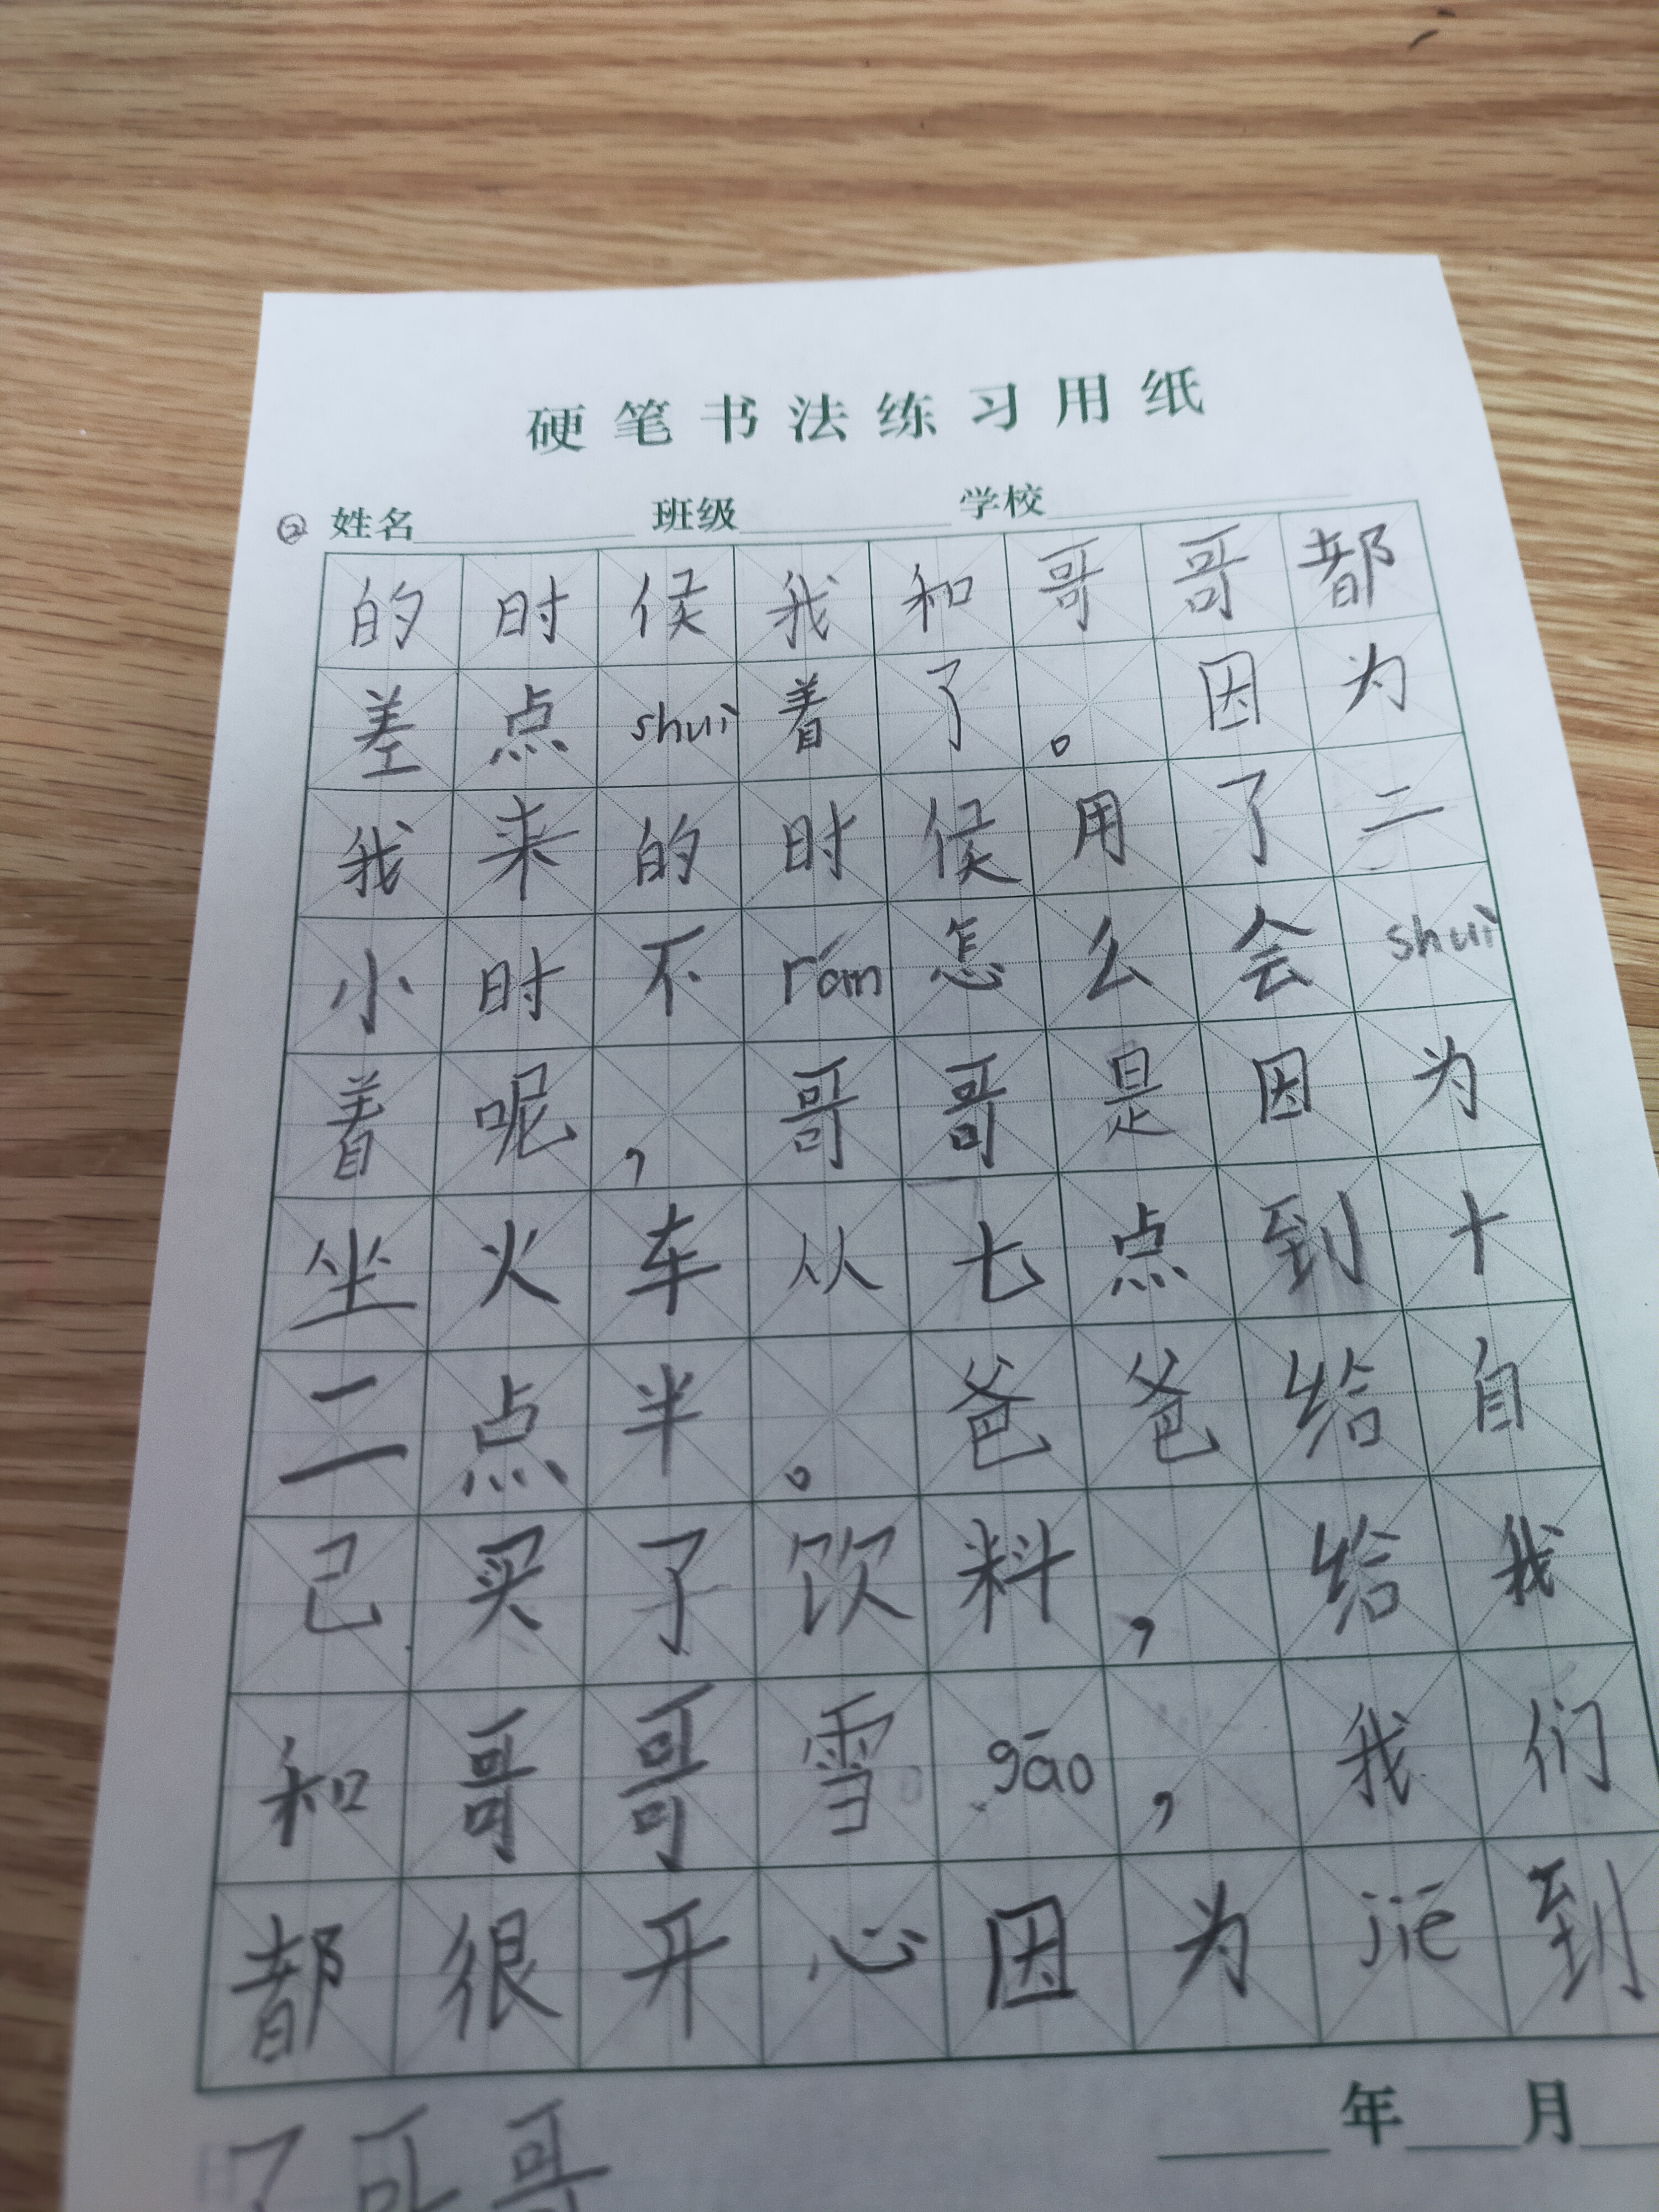 硬笔书法练习用纸
② 姓名 班级 学校
的时候我和哥哥都
差点shuì着了。因为
我来的时候用了二
小时不rán怎么会shuì
着呢，哥哥是因为
坐火车从七点到十
二点半。爸爸给自
己买了饮料，给我
和哥哥雪gāo，我们
都很开心因为jiē到
年 月
了哥哥